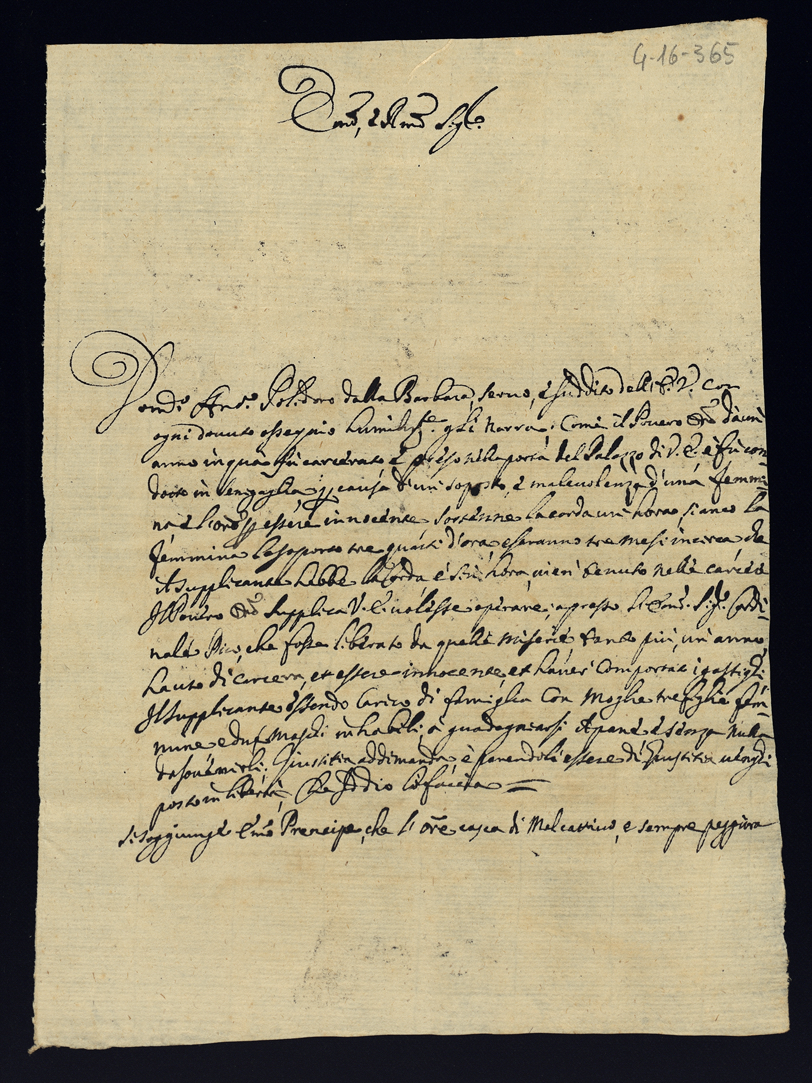 4-16-365
Emo, e Rmo Sigre.
Dom.co Ant.o Polidoro dalla Barbara, servo, e suddito dell'E. V. con
ogni douuto ossequio humilmte. gli narra. Come il Pouero Ore d'un
anno in quà fù carcerato e preso nella porta del Palazzo di V. E. e fù con-
dotto in Senegaglia p causa d'un sopsto, e maleuolenza d'una femmi-
na e l'ore p essere innocente sostenne la corda un hora si anco la
femmina la soporto tre quarti d'ora e saranno tre mesi incirca che
il supplicante hebbe la corda e si n'hora, vien tenuto nelle carcere
Il Pouro Ore supplica V. E. volesse operare, apresso l'Emo. Sig. Cardi-
nale Pico, che fosse liberato da quelle miserie, tanto più, un anno
hauto di carcera, et essere innocente, et hauer comportati i gastighi
Il supplicante essendo carico di famiglia con Moglie tre figlie fem-
mine e due Maschi inhabili, a guadagniarsi il pane e senza nulla
da souenirli; Giustitia addimanda, è parendoli essere di Giustitia
posto in libertà, Che Iddio lo faccia =
Si soggiunge Emo Prencipe, che l'Ore casca di Malcattiuo, e sempre peggiora